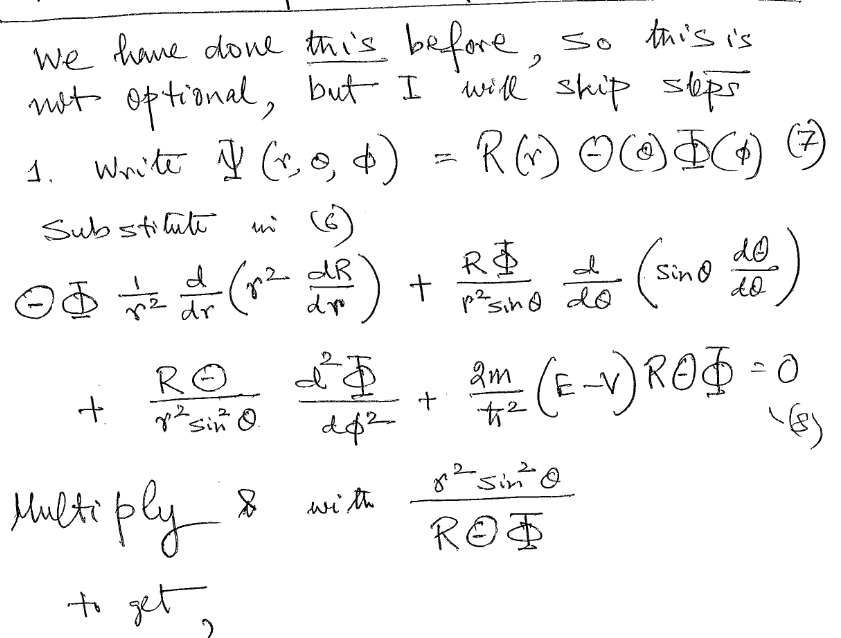 We have done this before, so this is
not optional, but I will skip steps
1. Write Ψ (r, θ, φ) = R(r) Θ(θ) Φ(φ) (7)
Substitute in (6)
ΘΦ 1/r² d/dr (r² dR/dr) + RΦ/r² sinθ d/dθ (sinθ dΘ/dθ)
+ RΘ/r² sin²θ d²Φ/dφ² + 2m/ħ² (E-V) RΘΦ = 0
(8)
Multiply 8 with r² sin²θ/RΘΦ
to get,